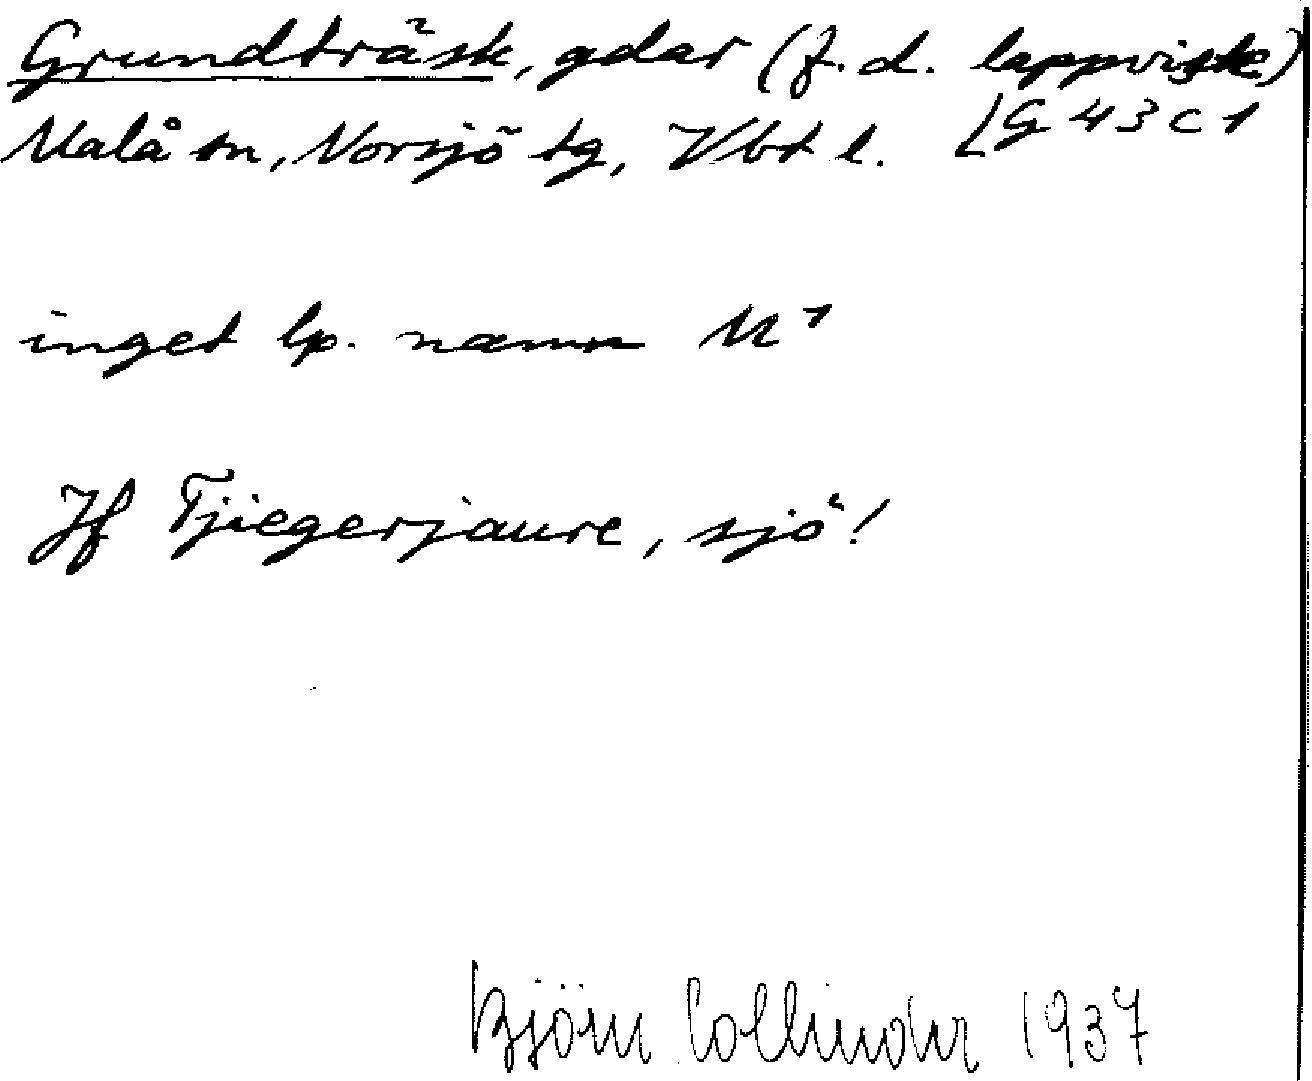 Grundträsk, gdar (f.d. lappviste)
Malå sn, Norsjö tg, Vbt l. [G 43 C 1
inget lp. namn M1
Jf Tjiegerjaure, sjö!
Björn Collinder 1937